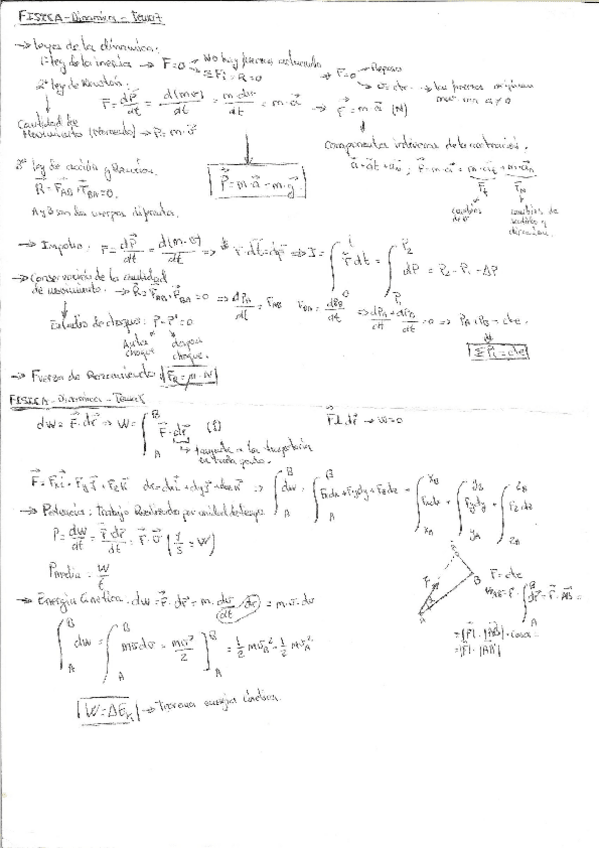 FISICA - Dinámica - Tema 7
→ Leyes de la dinámica:
1ª ley de la inercia → F=0 → No hay fuerzas actuando
→ ΣFi = R = 0
F=0 → Reposo
→ v=cte.
2ª ley de Newton:
F = dP/dt = d(m·v)/dt = m·dv/dt = m·a → F = m·a (N)
Cantidad de
Movimiento (Momento) → P = m·v
Componentes intrínsecas de la aceleración.
a = at + an ; F = m·a = m·at + m·an
Ft FN
cambios de v
cambios de
sentido y
dirección.
P = m·a = m·g
3ª ley de acción y Reacción.
R = FAB + FBA = 0.
A y B son los cuerpos diferentes.
→ Impulso: F = dP/dt = d(m·v)/dt ⇒ F·dt = dP ⇒ I = ∫ F dt = ∫ dP = P2 - P1 = ΔP
→ Conservación de la cantidad
de movimiento. → R = FAB + FBA = 0 ⇒ dPA/dt = FAB FBA = dPB/dt ⇒ dPA/dt + dPB/dt = 0 ⇒ PA + PB = cte.
ΣPi = cte
Estudio de choques: P = P' = 0
Antes choque
después choque.
→ Fuerza de Rozamiento: FR = μ·N
FISICA - Dinámica - Tema 8
dW = F·dr ⇒ W = ∫ F·dr [J]
F ⊥ dr → W=0
→ tangente a la trayectoria
en cada punto.
F = Fxi + Fyj + Fzk dr = dxi + dyj + dzk ⇒ ∫ dw = ∫ Fxdx + Fydy + Fzdz = ∫ Fxdx + ∫ Fydy + ∫ Fzdz
→ Potencia: Trabajo Realizado por unidad de tiempo
P = dW/dt = F·dr/dt = F·v (J/s = W)
Pmedia = W/t
F = cte
WAB = F·∫ dr = F·AB =
= |F|·|AB|·cosα =
= |F|·|AB'|
→ Energía Cinética. dW = F·dr = m·dv/dt·dr = m·v·dv
∫ dw = ∫ mvdv = mv²/2 ] = 1/2 mvB² - 1/2 mvA²
W = ΔEk → Teorema energía cinética.